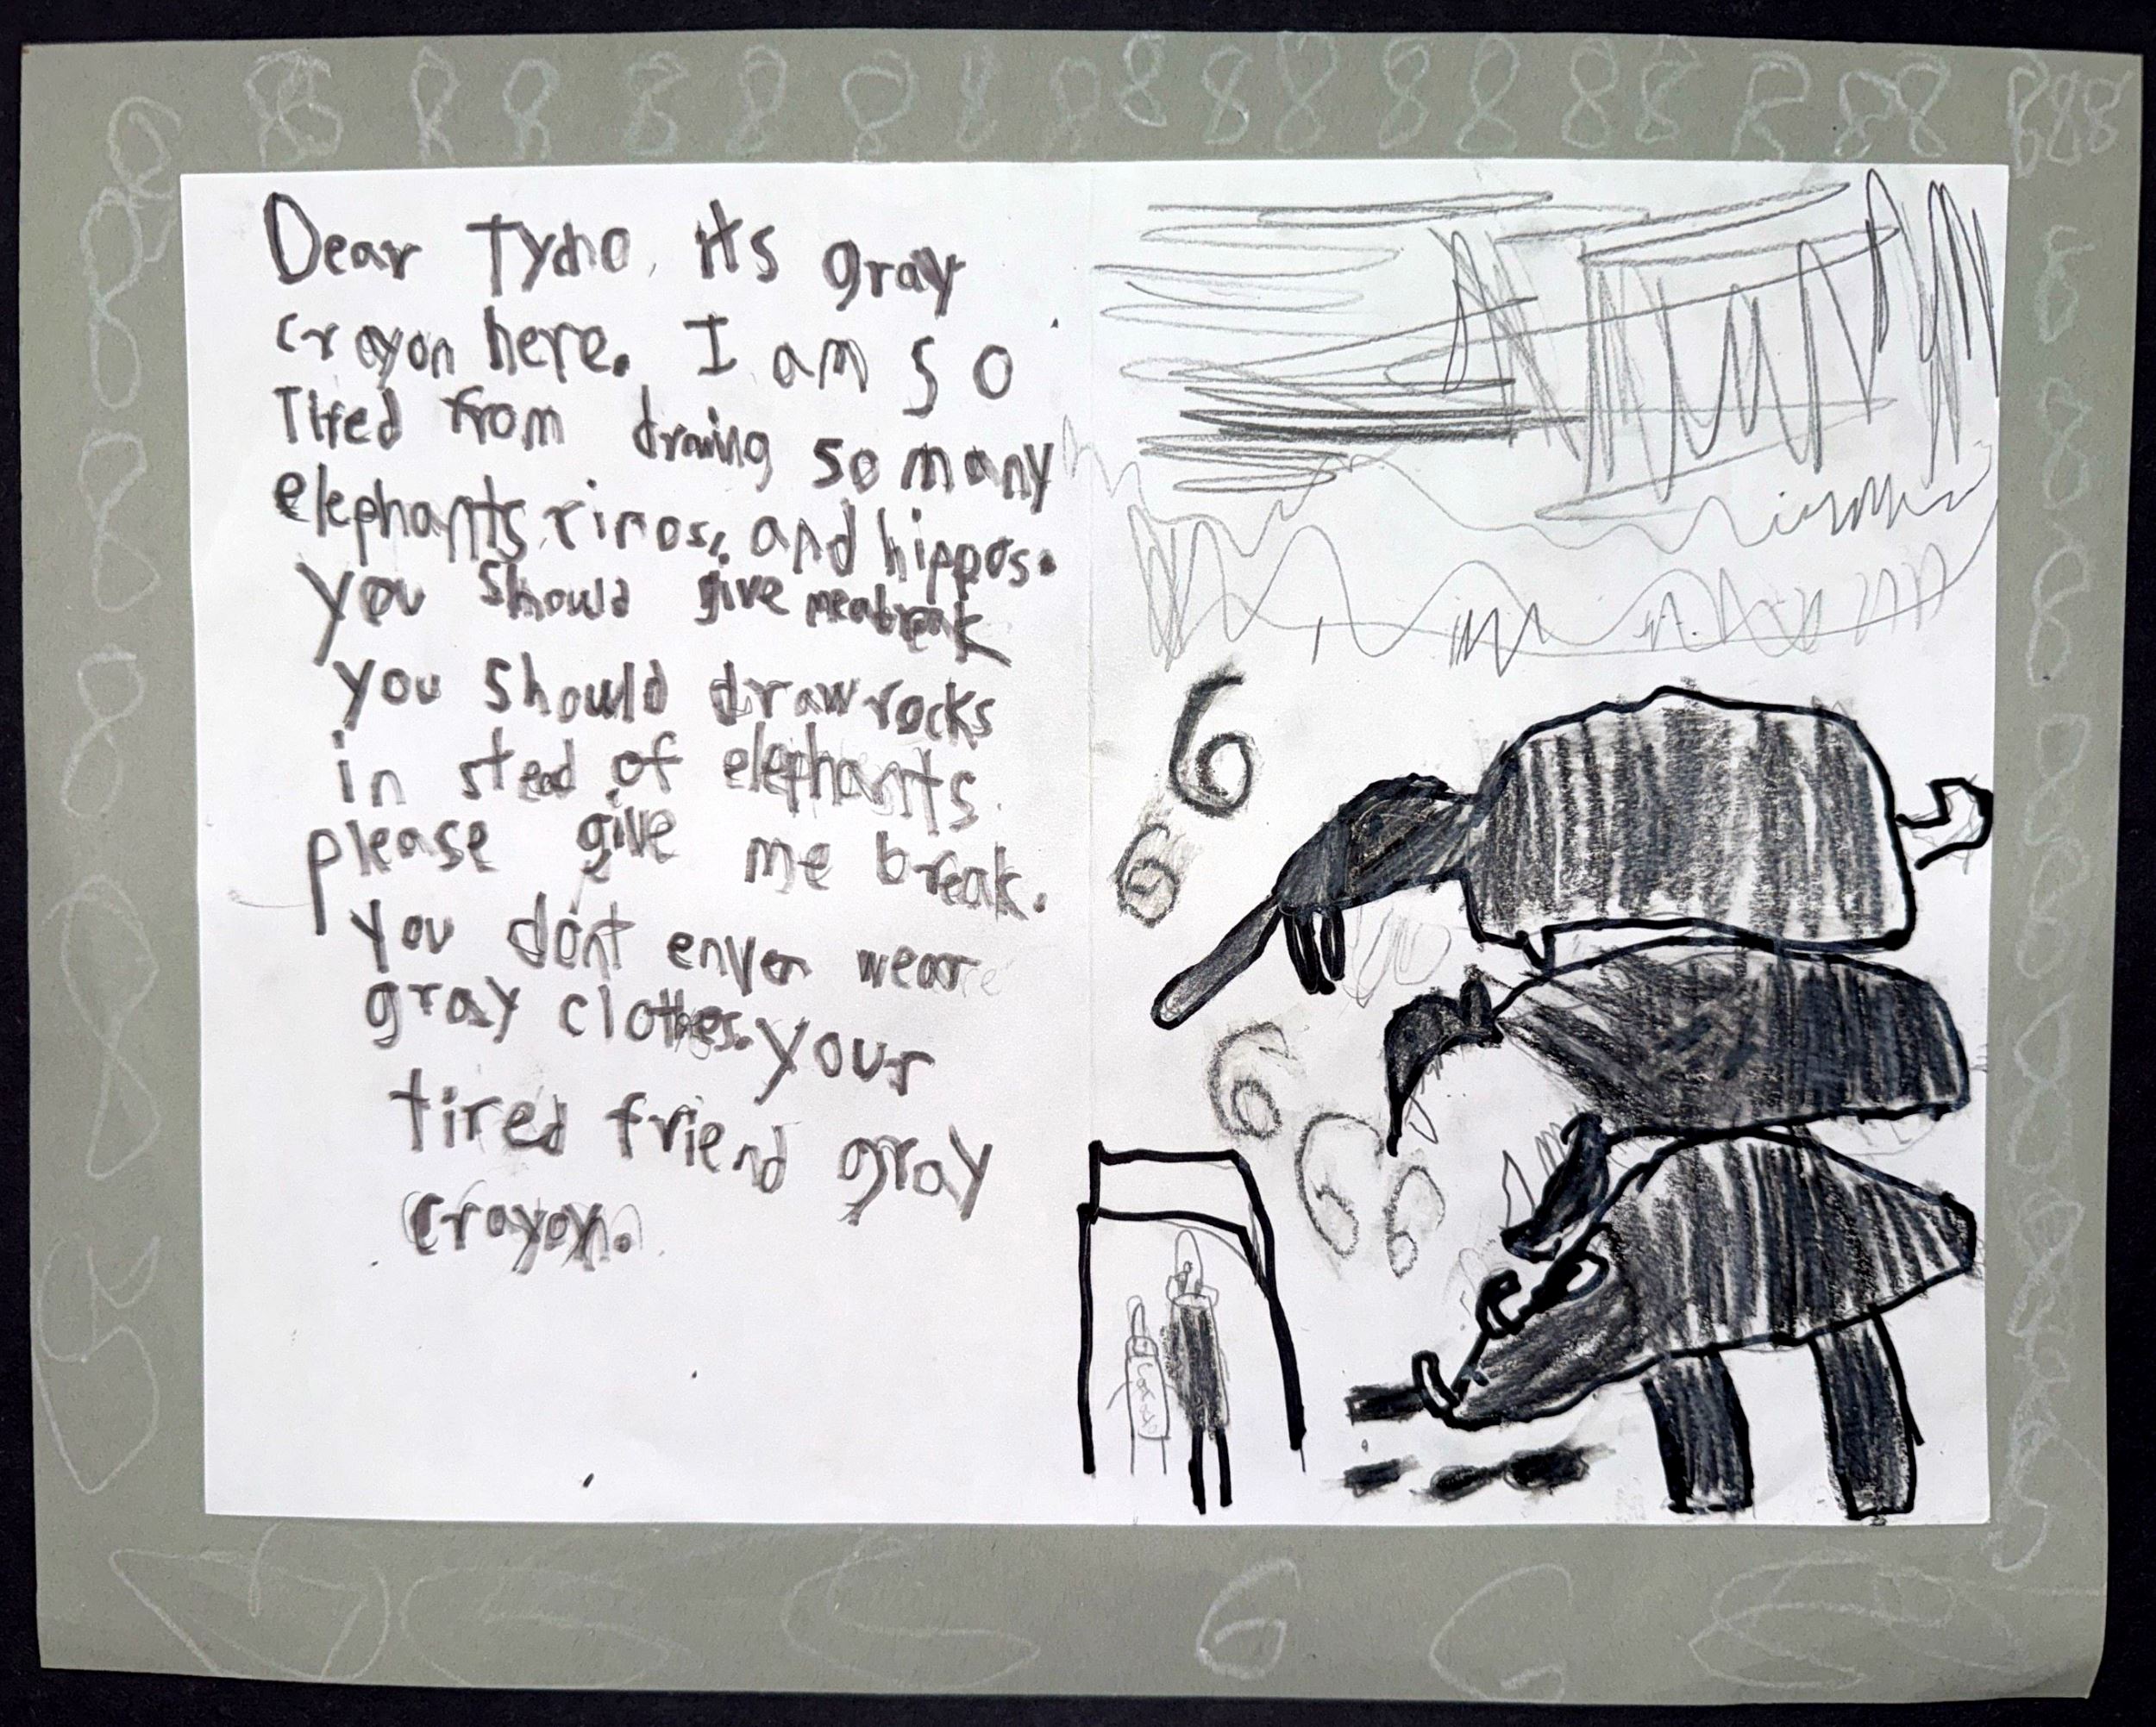 Dear Tycho, its gray
crayon here. I am so
Tired from drawing so many
elephants, rinos, and hippos.
you should give me a break
you should draw rocks
in stead of elephants.
please give me break.
you dont enven wear
gray clothes. your
tired friend gray
crayon.
6
6
6
6
6